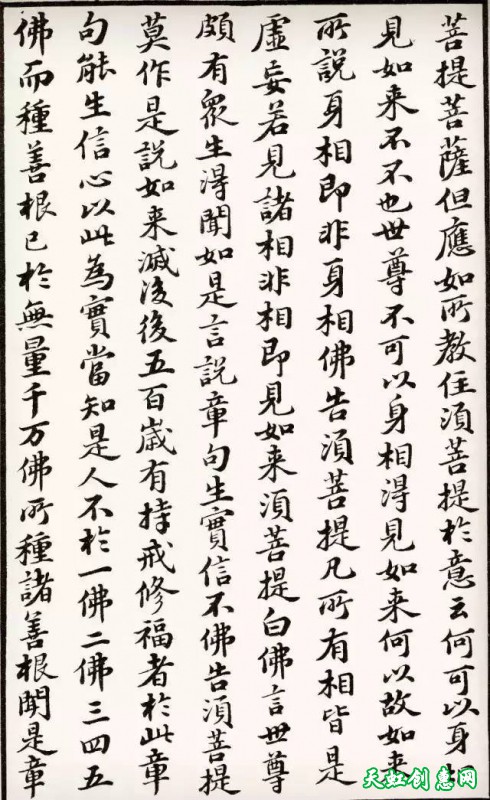 菩提菩薩但應如所教住須菩提於意云何可以身相
見如来不不也世尊不可以身相得見如来何以故如来
所說身相即非身相佛告須菩提凡所有相皆是
虛妄若見諸相非相即見如来須菩提白佛言世尊
頗有眾生得聞如是言說章句生實信不佛告須菩提
莫作是說如来滅後後五百歲有持戒修福者於此章
句能生信心以此為實當知是人不於一佛二佛三四五
佛而種善根已於無量千万佛所種諸善根聞是章
天虹创惠网